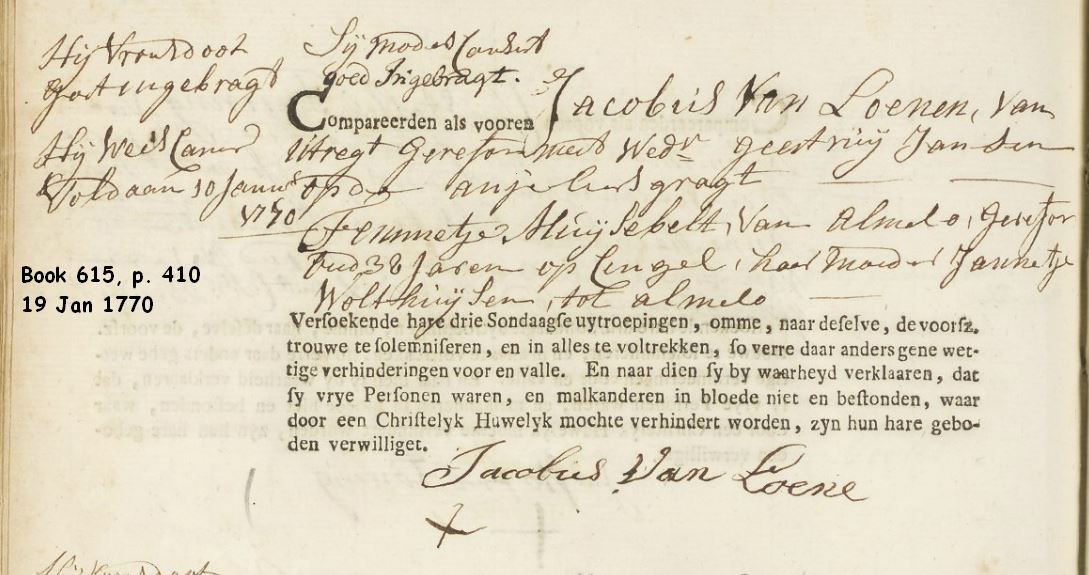 Hij Vrouwsdoot
goet ingebragt
Hij Weescamer
Voldaan 10 Janu
1770
Sij Moders Consent
goed Ingebragt.
Compareerden als vooren Jacobus Van Loenen, Van
Utregt Gereformeert Wedr geertruij Jansen
op de anjeliersgragt
Femmetje Muijsebelt, Van Almelo, Gerefor
Oud 38 Jaren op Cingel, haer Moeder Jannetje
Wolthuijsen, tot almelo
Versoekende hare drie Sondaagse uytroepingen, omme, naar deselve, de voorsz.
trouwe te solemniseren, en in alles te voltrekken, so verre daar anders gene wet-
tige verhinderingen voor en valle. En naar dien sy by waarheyd verklaaren, dat
sy vrye Personen waren, en malkanderen in bloede niet en bestonden, waar
door een Christelyk Huwelyk mochte verhindert worden, zyn hun hare gebo-
den verwilliget.
Jacobus Van Loene
Book 615, p. 410
19 Jan 1770